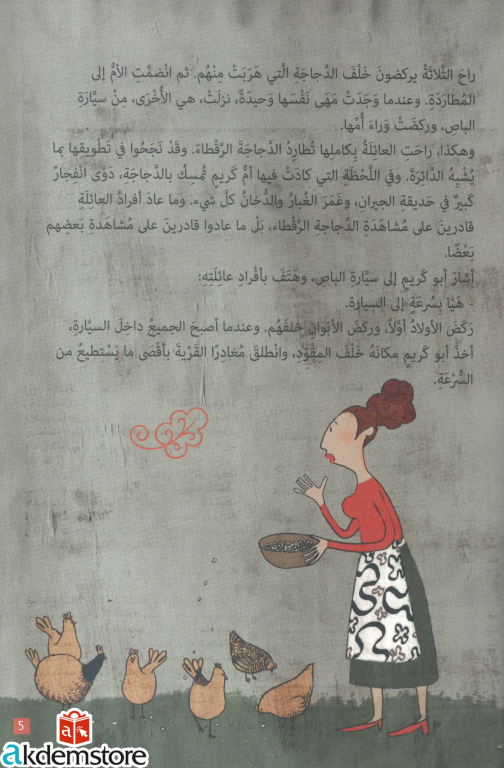 راحَ الثَّلاثَةُ يركضونَ خَلْفَ الدَّجاجَةِ الَّتي هَرَبَتْ مِنْهُم. ثم انْضمَّتِ الأمُّ إلى
المُطارَدَةِ. وعندما وَجَدَتْ مَهَى نَفْسَها وَحيدَةً، نزلَتْ، هي الأُخْرَى، مِنْ سيَّارَةِ
الباصِ، وركضَتْ وَراءَ أُمِّها.
وهكذا، راحَتِ العائلَةُ بِكاملِها تُطارِدُ الدَّجاجَةَ الرَّقْطاءَ. وقَدْ نَجَحُوا في تَطْويقِها بما
يُشْبِهُ الدَّائرَةَ. وفي اللَّحْظَةِ التي كادَتْ فيها أُمُّ كَريمٍ تُمسِكُ بالدَّجاجَةِ، دَوَّى انْفِجَارٌ
كَبيرٌ في حَديقةِ الجيرانِ، وغَمَرَ الغُبارُ والدُّخانُ كلَّ شيء. وما عادَ أفرادُ العائلَةِ
قادرينَ على مُشاهَدَةِ الدَّجاجةِ الرَّقْطاء، بَلْ ما عادوا قادرين على مُشاهَدَةِ بَعضِهم
بَعْضًا.
أشارَ أبو كَريمٍ إلى سيَّارةِ الباصِ، وهَتَفَ بأفْرادِ عائلَتِهِ:
- هَيَّا بِسُرعَةٍ إلى السيارة.
رَكَضَ الأولادُ أوَّلًا، وركضَ الأبَوَانِ خلفَهُم. وعندما أصبحَ الجميعُ داخلَ السيَّارةِ،
أخذَ أبو كَريمٍ مكانَهُ خَلْفَ المِقْوَدِ، وانْطلقَ مُغادِرًا القَرْيةَ بأقْصَى ما يَسْتطيعُ من
السُّرْعَةِ.
5
akdemstore